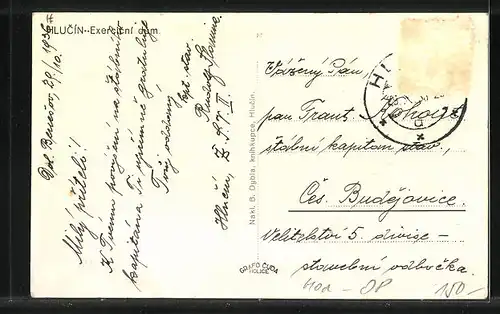 HLUČÍN--Exerciční dům
Dol. Benešov, 29/10. 1936
Milý příteli!
K Tvému povýšení na štábního
kapitána Ti upřímně gratuluje
Tvůj oddaný
kpt. stav.
Rudolf
Hlučín,
Nakl. B. Dobša, knihkupec, Hlučín.
GRAFO ČUDA
HOLICE
Vážený Pán
pan Frant.
štábní kapitán stav.,
Čes. Budějovice.
Velitelství 5. divise -
stavební odbočka.
150.-